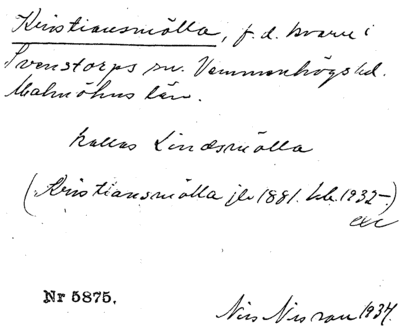 Kristiansmölla, f.d. kvarn i
Svenstorps sn. Vemmenhögs hd.
Malmöhus län.
kallas Lindsmölla
(Kristiansmölla jb 1881. 1932-)
exc
Nr 5875.
Nils Nilsson 1934.